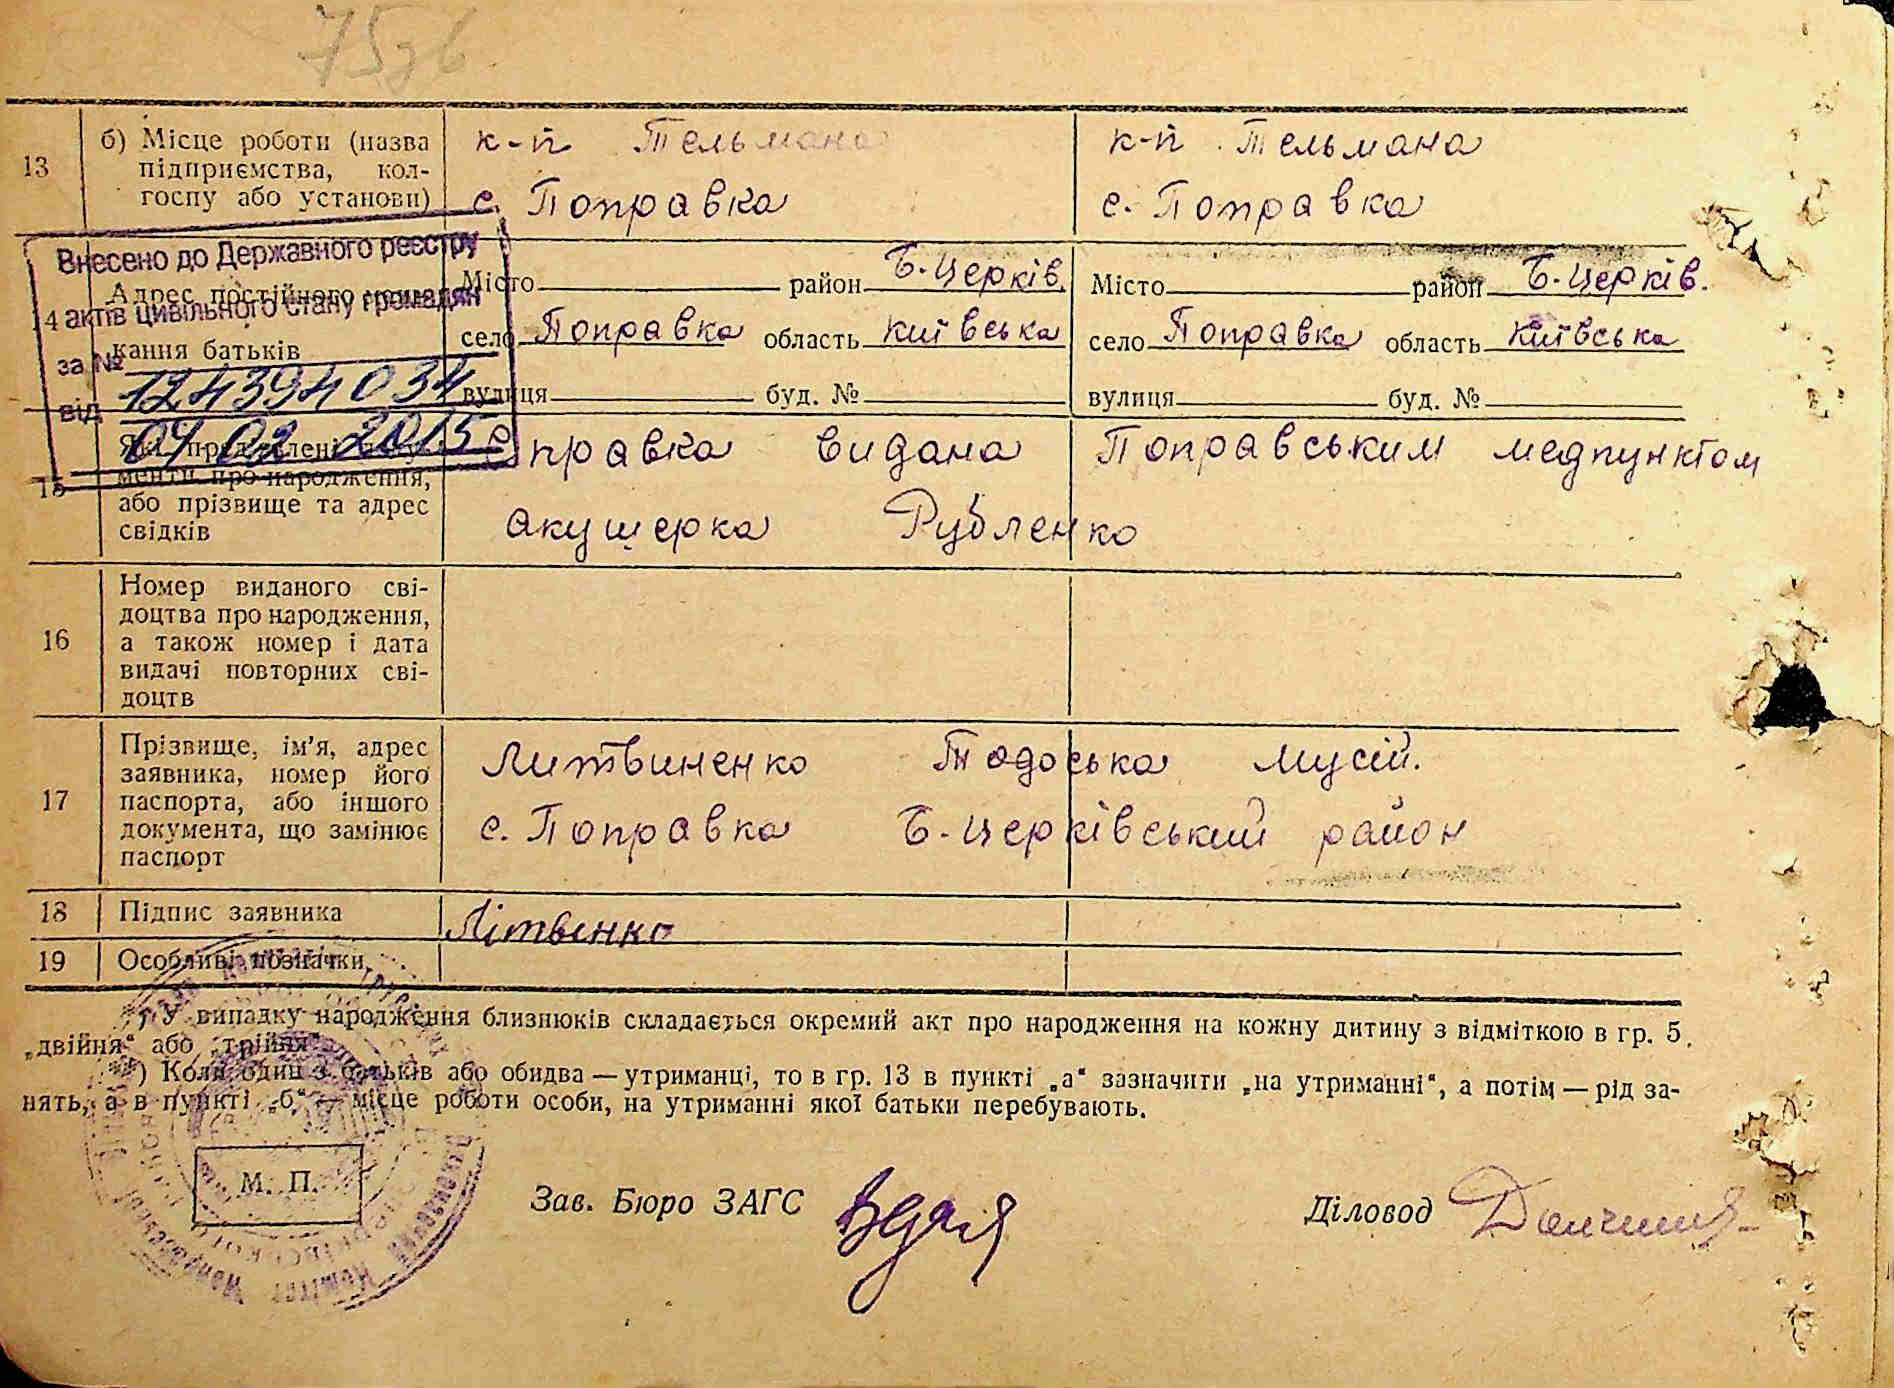 75зв
13
б) Місце роботи (назва
підприємства, кол-
госпу або установи)
к-п Тельмана
с. Поправка
к-п Тельмана
с. Поправка
Внесено до Державного реєстру
актів цивільного стану громадян
за № 124394034
від 04 02 2015
Адрес постійного
кання батьків
Місто район Б. Церків.
село Поправка область Київська
вулиця буд. №
Місто район Б. Церків.
село Поправка область Київська
вулиця буд. №
15
менти про народження,
або прізвище та адрес
свідків
Справка видана Поправським медпунктом
акушерка Рубленко
16
Номер виданого сві-
доцтва про народження,
а також номер і дата
видачі повторних сві-
доцтв
17
Прізвище, ім'я, адрес
заявника, номер його
паспорта, або іншого
документа, що замінює
паспорт
Литвиненко Тодоська Мусій.
с. Поправка Б-Церківський район
18 Підпис заявника
Літвенко
19 Особливі позначки
У випадку народження близнюків складається окремий акт про народження на кожну дитину з відміткою в гр. 5
„двійня“ або „трійня“
) Коли один з батьків або обидва — утриманці, то в гр. 13 в пункті „а“ зазначити „на утриманні“, а потім — рід за-
нять, а в пункті „б“ — місце роботи особи, на утриманні якої батьки перебувають.
М. П.
Зав. Бюро ЗАГС
Діловод